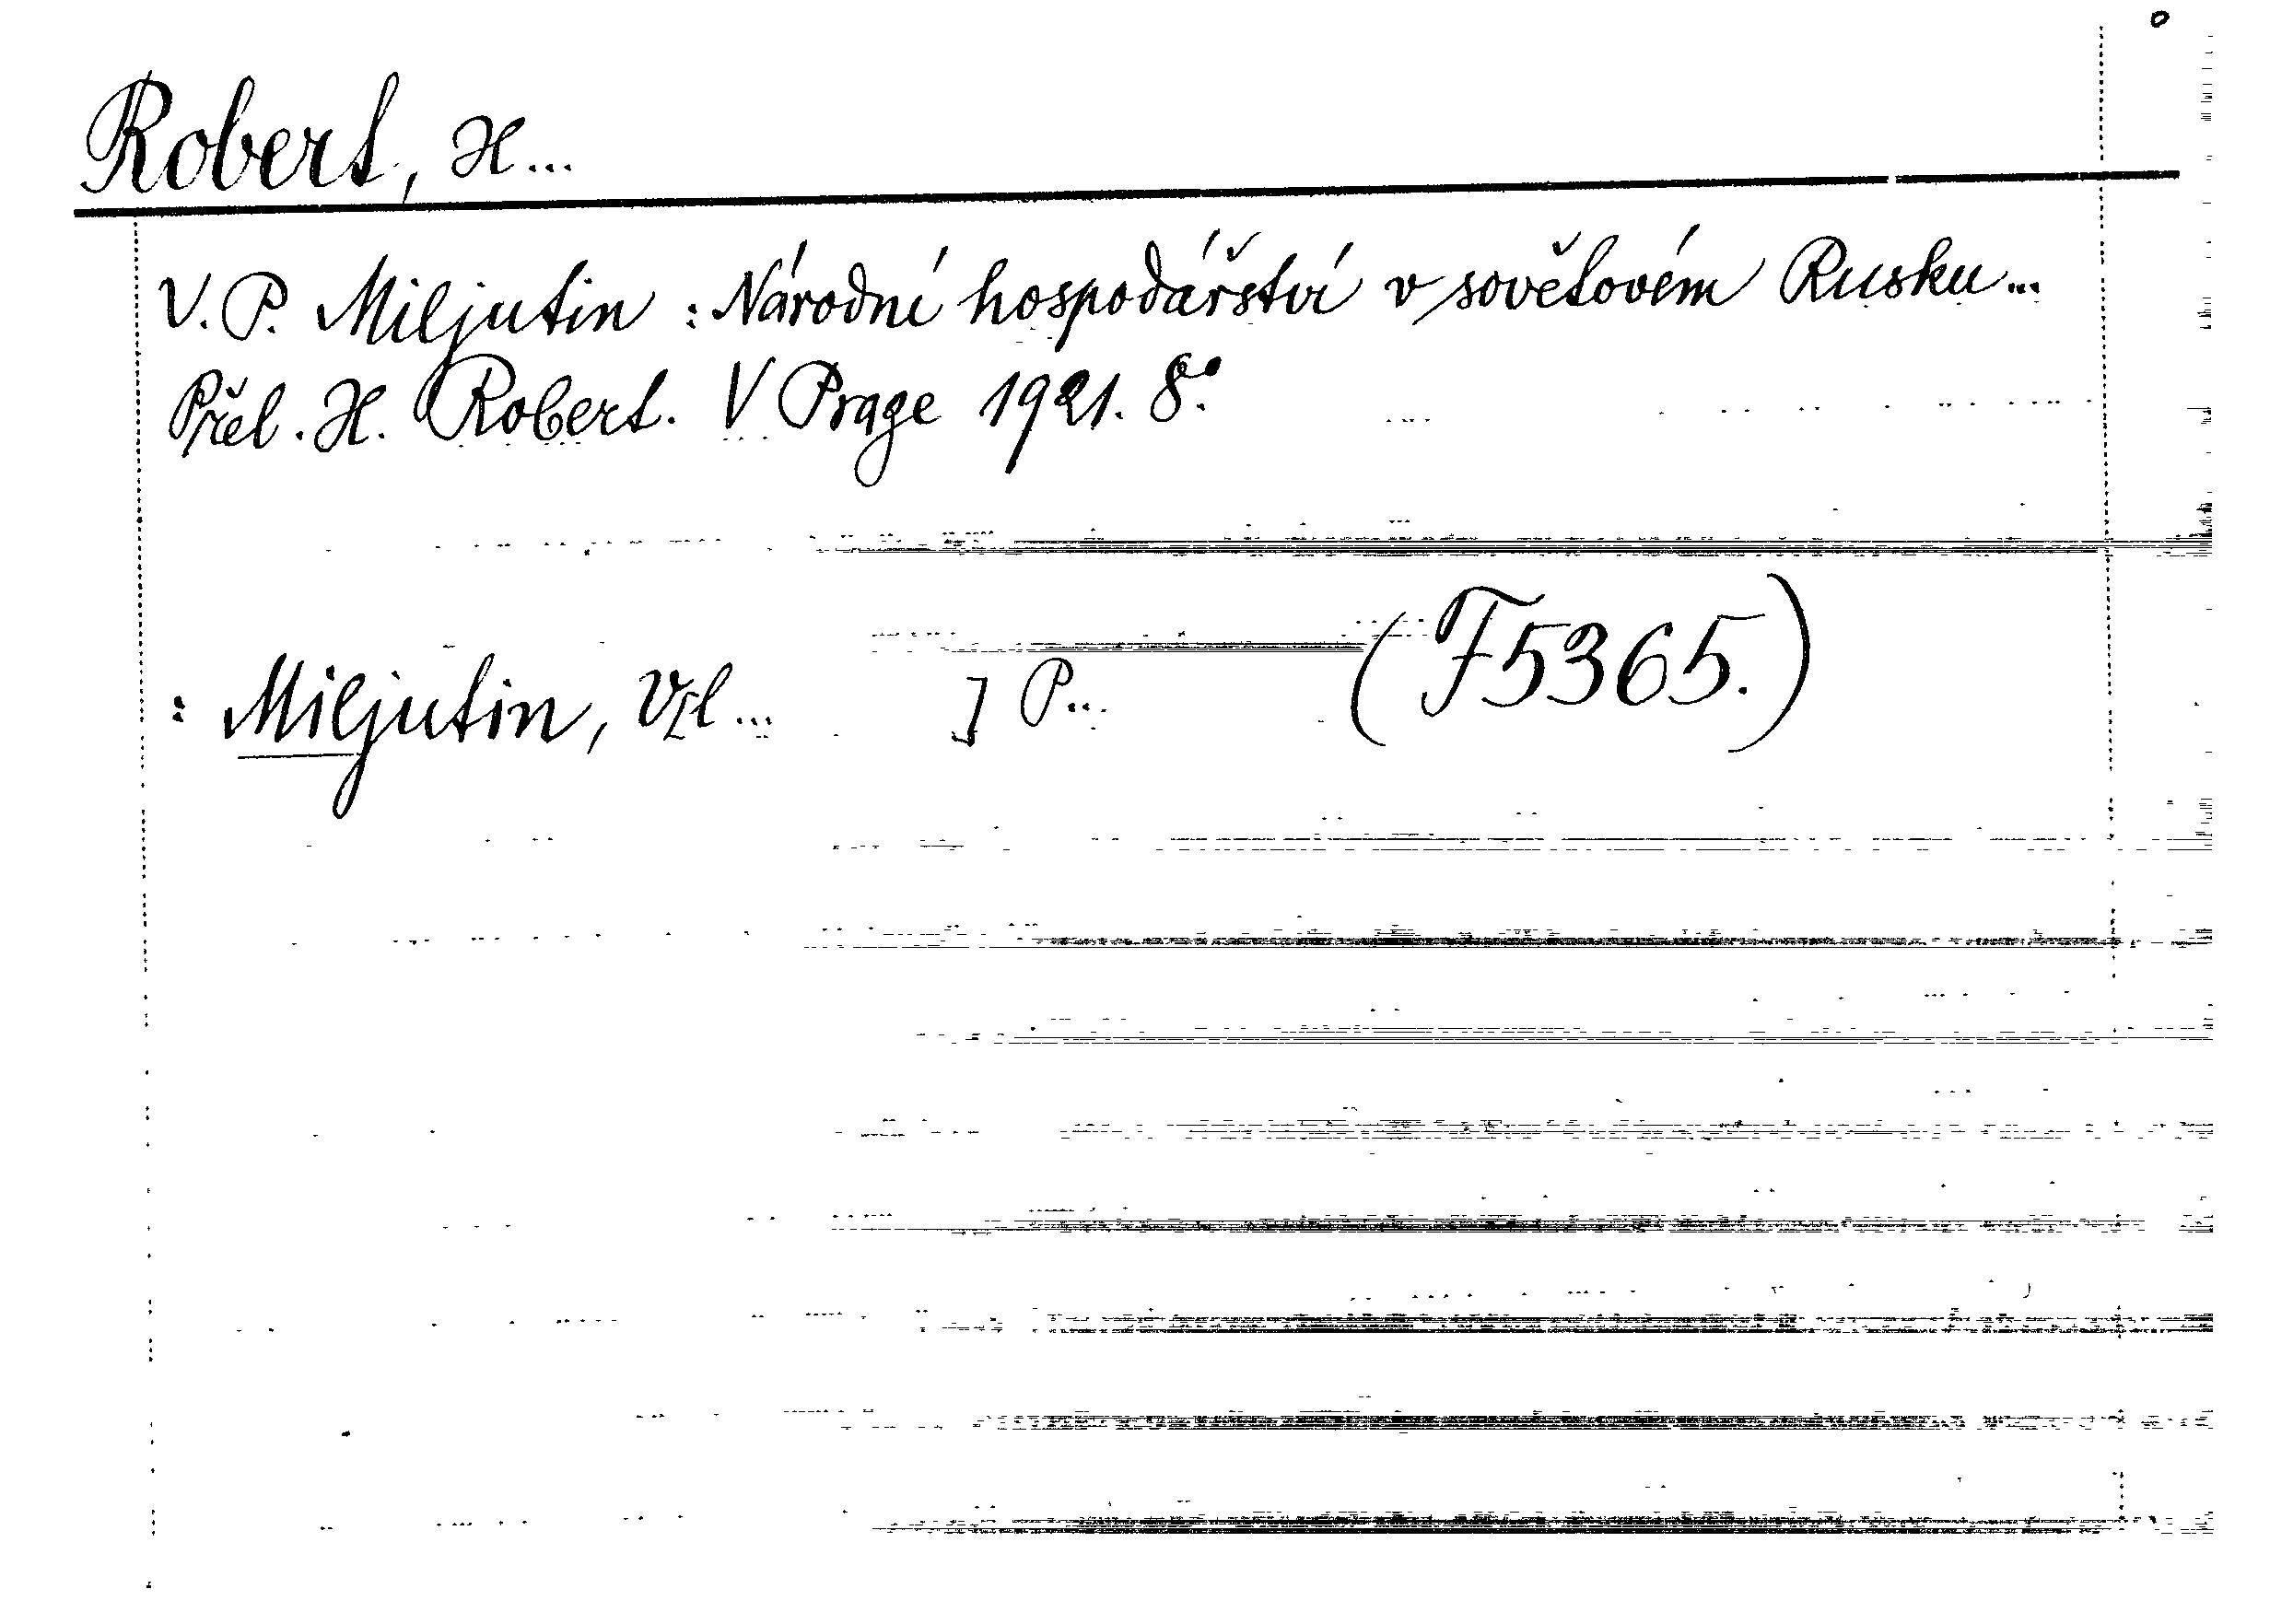 Robert, H...
V. P. Miljutin : Národní hospodářství v sovětovém Rusku...
Přel. H. Robert. V Prage 1921. 8°.
: Miljutin, Vl... ] P... (F5365.)